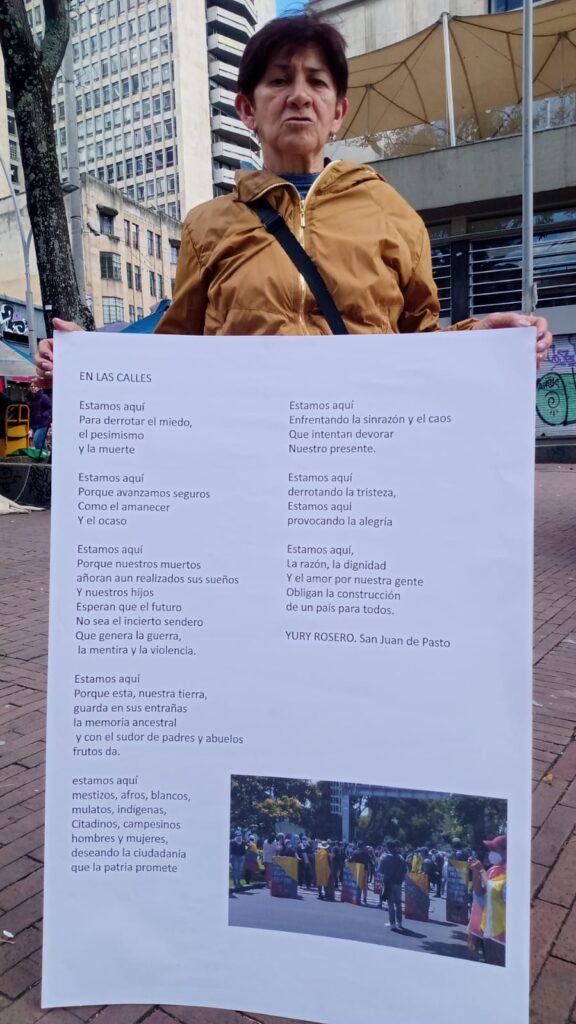 EN LAS CALLES
Estamos aquí
Para derrotar el miedo,
el pesimismo
y la muerte
Estamos aquí
Porque avanzamos seguros
Como el amanecer
Y el ocaso
Estamos aquí
Porque nuestros muertos
añoran aun realizados sus sueños
Y nuestros hijos
Esperan que el futuro
No sea el incierto sendero
Que genera la guerra,
la mentira y la violencia.
Estamos aquí
Porque esta, nuestra tierra,
guarda en sus entrañas
la memoria ancestral
y con el sudor de padres y abuelos
frutos da.
estamos aquí
mestizos, afros, blancos,
mulatos, indígenas,
Citadinos, campesinos
hombres y mujeres,
deseando la ciudadanía
que la patria promete
Estamos aquí
Enfrentando la sinrazón y el caos
Que intentan devorar
Nuestro presente.
Estamos aquí
derrotando la tristeza,
Estamos aquí
provocando la alegría
Estamos aquí,
La razón, la dignidad
Y el amor por nuestra gente
Obligan la construcción
de un país para todos.
YURY ROSERO. San Juan de Pasto